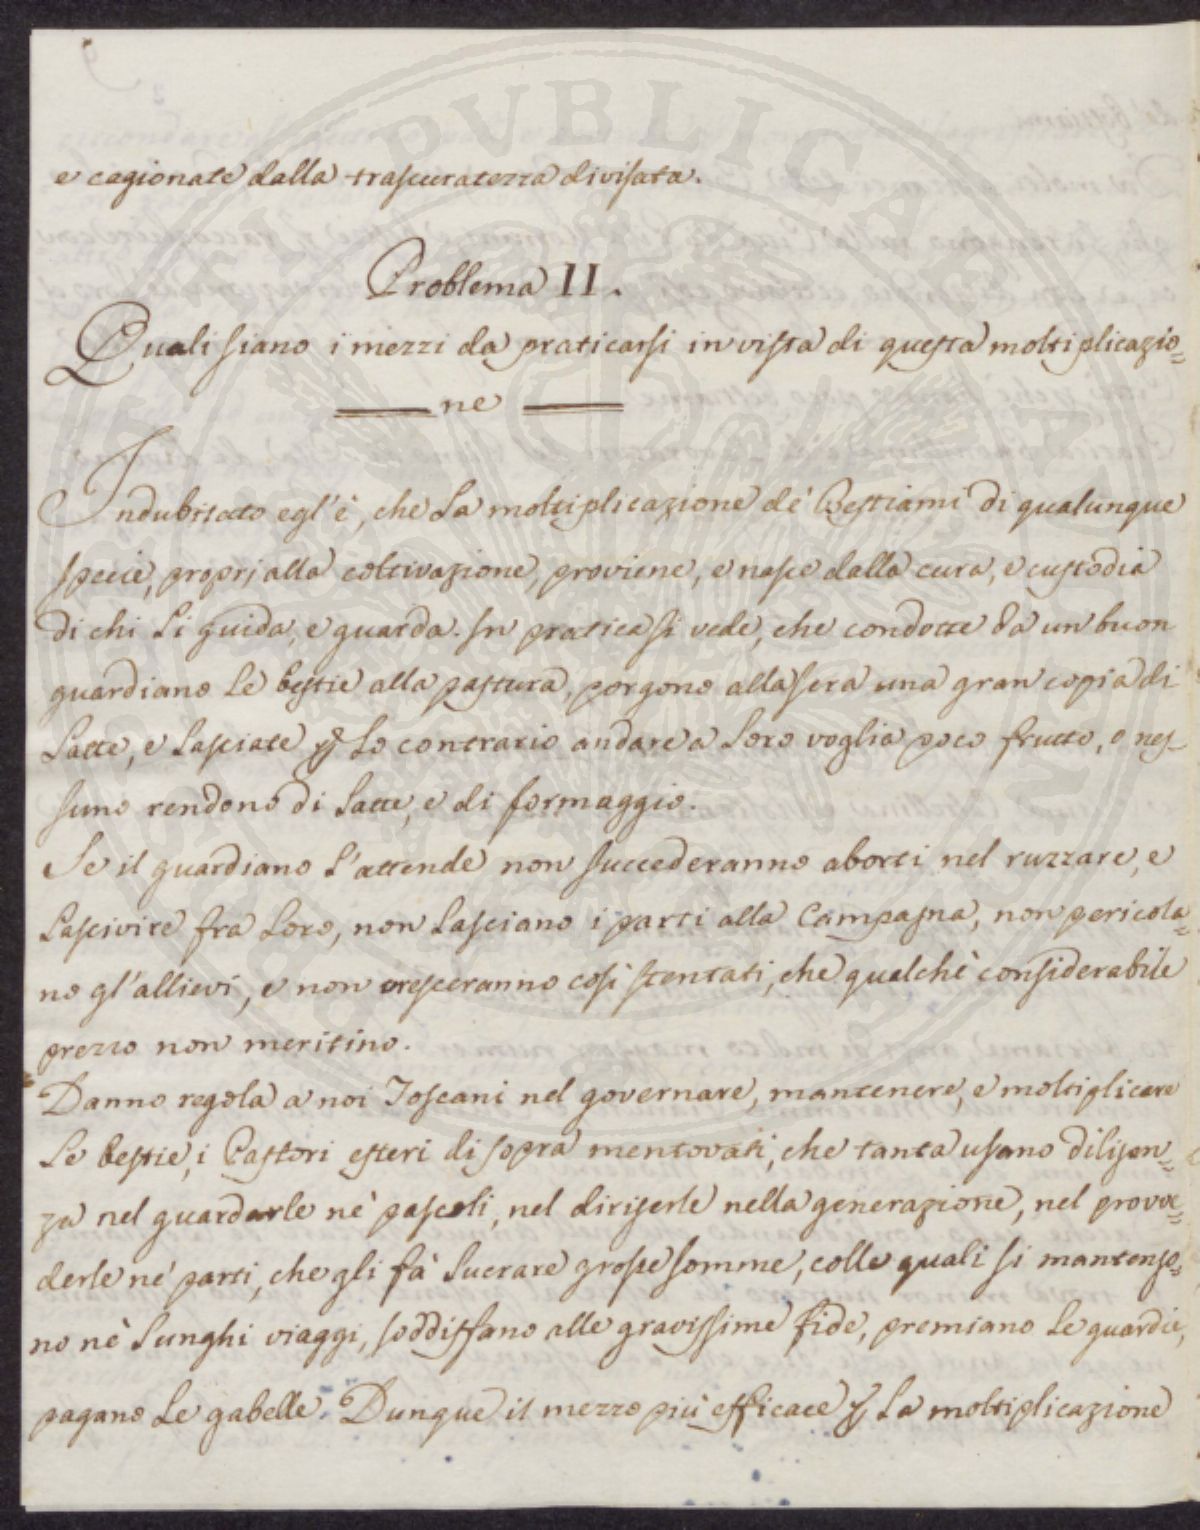 e cagionate dalla trascuratezza divisata.
Problema II.
Quali siano i mezzi da praticarsi in vista di questa moltiplicazio=
ne
Indubitato egl'è, che La moltiplicazione de' Bestiami di qualunque
specie, proprj alla coltivazione, proviene, e nasce dalla cura, e custodia
di chi Li guida, e guarda. In pratica si vede, che condotte da un buon
guardiano Le bestie alla pastura, porgono alla sera una gran copia di
Latte, e Lasciate p Lo contrario andare a Loro voglia poco frutto, o nes=
suno rendono di Latte, e di formaggio.
Se il guardiano L'attende non succederanno aborti nel ruzzare, e
Lascivire fra Loro, non Lasciano i parti alla Campagna, non pericola=
no gl'allievi, e non cresceranno così stentati, che qualche considerabile
prezzo non meritino.
Danno regola a noi Toscani nel governare, mantenere, e moltiplicare
Le bestie, i Pastori esteri di sopra mentovati, che tanta usano diligen=
za nel guardarle nè pascoli, nel dirigerle nella generazione, nel prove=
derle nè parti, che gli fà Lucrare grosse somme, colle quali si mantengo=
no nè Lunghi viaggi, soddisfano alle gravissime fide, premiano Le guardie,
pagano Le gabelle. Dunque il mezzo più efficace p La moltiplicazione
PUBLICAE